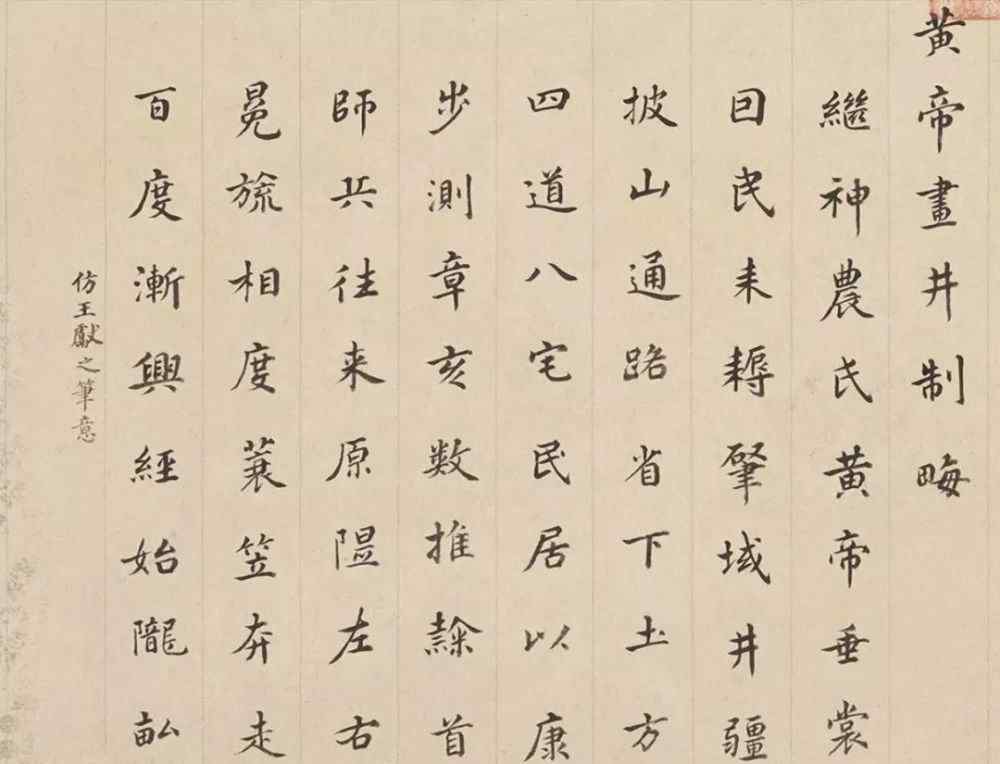 黃帝畫井制畮
繼神農氏黃帝垂裳
因民耒耨肇域井疆
披山通路省下土方
四道八宅民居以康
步測章亥数推隸首
師兵往来原隰左右
冕旒相度蓑笠奔走
百度漸興經始隴畝
仿王獻之筆意